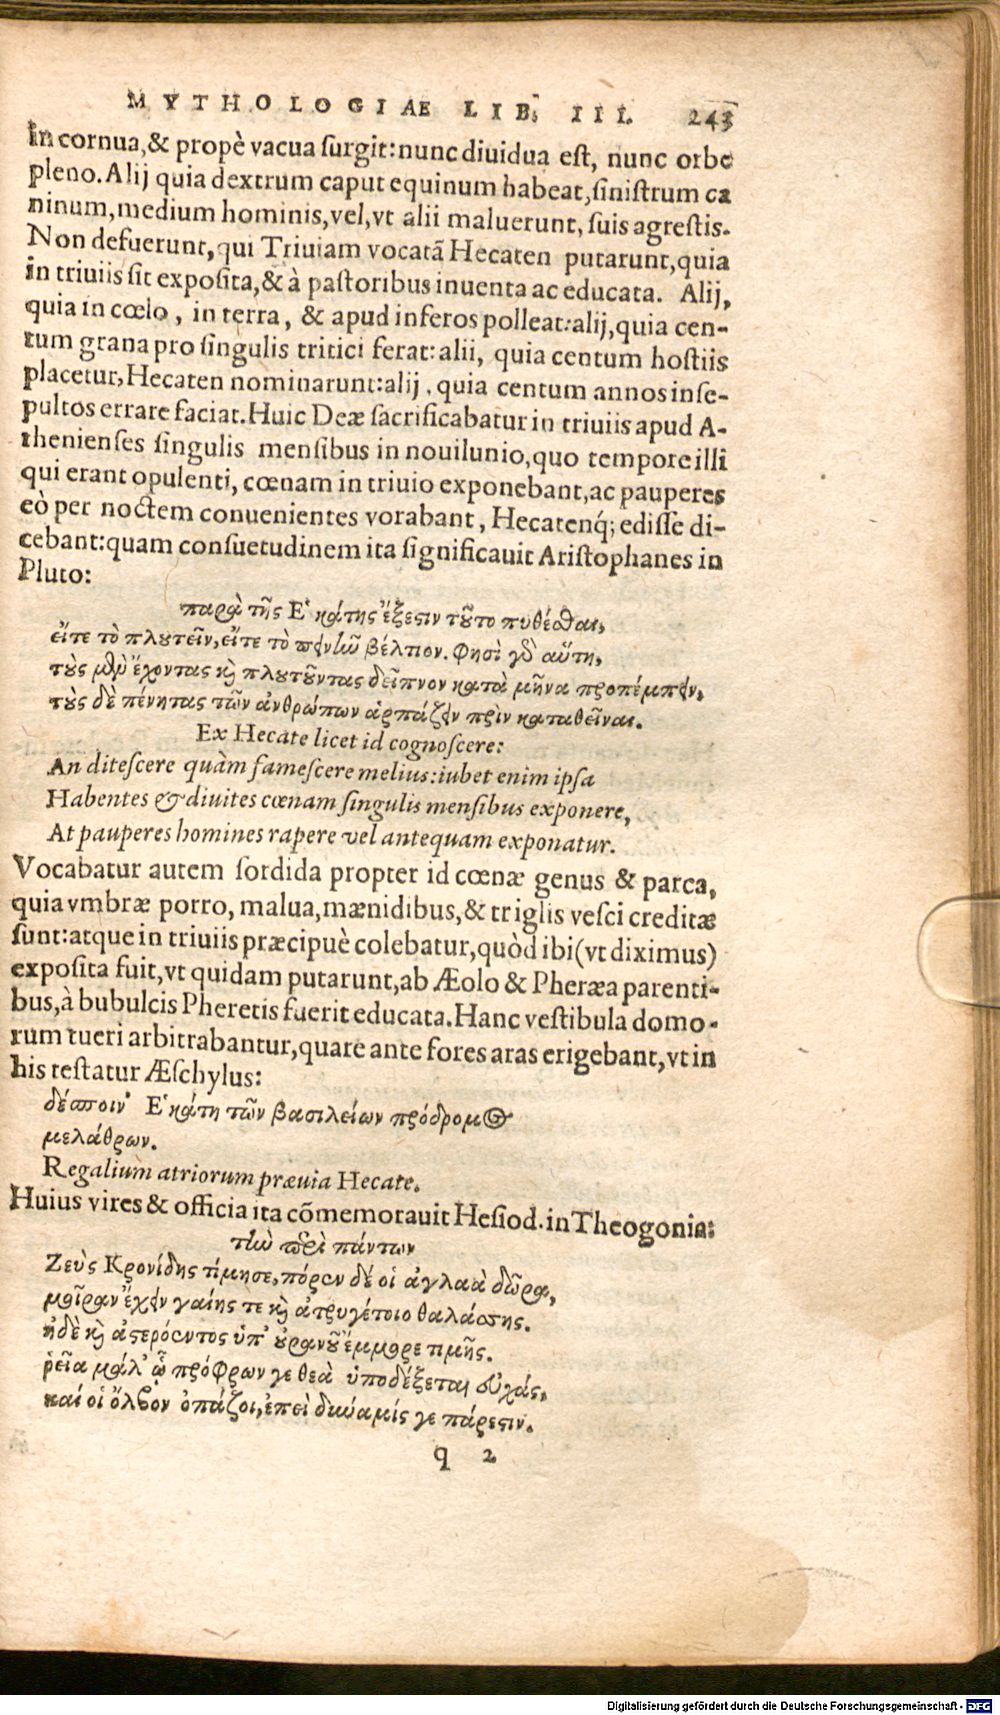 MYTHOLOGIAE LIB. III. 243
in cornua,& propè vacua surgit:nunc diuidua est, nunc orbe
pleno. Alij quia dextrum caput equinum habeat,sinistrum ca
ninum,medium hominis,vel,vt alii maluerunt, suis agrestis.
Non defuerunt,qui Triuiam vocatã Hecaten putarunt,quia
in triuiis sit exposita,& à pastoribus inuenta ac educata. Alij,
quia in cœlo, in terra, & apud inferos polleat:alij,quia cen-
tum grana pro singulis tritici ferat:alii, quia centum hostiis
placetur,Hecaten nominarunt:alij, quia centum annos inse-
pultos errare faciat. Huic Deæ sacrificabatur in triuiis apud A-
thenienses singulis mensibus in nouilunio,quo tempore illi
qui erant opulenti, cœnam in triuio exponebant,ac pauperes
eò per noctem conuenientes vorabant, Hecatenq́; edisse di-
cebant:quam consuetudinem ita significauit Aristophanes in
Pluto:
παρὰ τῆς Ἑκάτης ἔξεστιν τοῦτο πυθέσθαι,
εἴτε τὸ πλουτεῖν,εἴτε τὸ πεινῶν βέλτιον. Φησὶ γὸ αὕτη,
τοὺς μὲν ἔχοντας καὶ πλουτοῦντας δεῖπνον κατὰ μῆνα προπέμπειν,
τοὺς δὲ πένητας τῶν ἀνθρώπων ἁρπάζειν πρὶν καταθεῖναι.
Ex Hecate licet id cognoscere:
An ditescere quàm famescere melius:iubet enim ipsa
Habentes & diuites cœnam singulis mensibus exponere,
At pauperes homines rapere vel antequam exponatur.
Vocabatur autem sordida propter id cœnæ genus & parca,
quia vmbræ porro, malua,mænidibus,& triglis vesci creditæ
sunt:atque in triuiis præcipuè colebatur,quòd ibi(vt diximus)
exposita fuit,vt quidam putarunt,ab Æolo & Pheræa parenti-
bus,à bubulcis Pheretis fuerit educata. Hanc vestibula domo-
rum tueri arbitrabantur,quare ante fores aras erigebant,vt in
his testatur Æschylus:
δέσποιν' Ἑκάτη τῶν βασιλείων πρόδρομος
μελάθρων.
Regalium atriorum præuia Hecate.
Huius vires & officia ita cõmemorauit Hesiod. in Theogonia:
τὴν περὶ πάντων
Ζεὺς Κρονίδης τίμησε,πόρεν δέ οἱ ἀγλαὰ δῶρα,
μοῖραν ἔχειν γαίης τε καὶ ἀτρυγέτοιο θαλάσσης.
ἠδὲ καὶ ἀστερόεντος ὑπ' οὐρανοῦ ἔμμορε τιμῆς.
ῥεῖα μάλ' ᾧ πρόφρων γε θεὰ ὑποδέξεται εὐχάς,
καί οἱ ὄλβον ὀπάζοι,ἐπεὶ δύναμίς γε πάρεστιν.
q 2
Digitalisierung gefördert durch die Deutsche Forschungsgemeinschaft - DFG